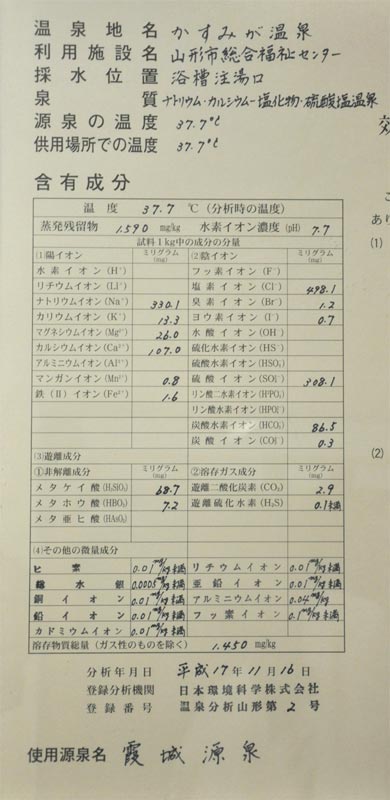 温泉地名 かすみが温泉
利用施設名 山形市総合福祉センター
採水位置 浴槽注湯口
泉質 ナトリウム・カルシウム-塩化物・硫酸塩温泉
源泉の温度 37.7℃
供用場所での温度 37.7℃
含有成分
温度 37.7 ℃(分析時の温度)
蒸発残留物 1.590 mg/kg 水素イオン濃度(pH) 7.7
試料1kg中の成分の分量
(1)陽イオン ミリグラム(mg/kg) (2)陰イオン ミリグラム(mg/kg)
水素イオン(H⁺) フッ素イオン(F⁻)
リチウムイオン(Li⁺) 塩素イオン(Cl⁻) 498.1
ナトリウムイオン(Na⁺) 330.1 臭素イオン(Br⁻) 1.2
カリウムイオン(K⁺) 13.3 ヨウ素イオン(I⁻) 0.7
マグネシウムイオン(Mg²⁺) 26.0 水酸イオン(OH⁻)
カルシウムイオン(Ca²⁺) 107.0 硫化水素イオン(HS⁻)
アルミニウムイオン(Al³⁺) 硫酸水素イオン(HSO₄⁻)
マンガンイオン(Mn²⁺) 0.8 硫酸イオン(SO₄²⁻) 308.1
鉄(II)イオン(Fe²⁺) 1.6 リン酸二水素イオン(H₂PO₄⁻)
リン酸水素イオン(HPO₄²⁻)
炭酸水素イオン(HCO₃⁻) 86.5
炭酸イオン(CO₃²⁻) 0.3
(3)遊離成分
①非解離成分 ミリグラム(mg/kg) ②溶存ガス成分 ミリグラム(mg/kg)
メタケイ酸(H₂SiO₃) 68.7 遊離二酸化炭素(CO₂) 2.9
メタホウ酸(HBO₂) 7.2 遊離硫化水素(H₂S) 0.1未満
メタ亜ヒ酸(HAsO₂)
(4)その他の微量成分
ヒ素 0.01mg/kg未満 リチウムイオン 0.01mg/kg未満
総水銀 0.0005mg/kg未満 亜鉛イオン 0.01mg/kg未満
銅イオン 0.01mg/kg未満 アルミニウムイオン 0.04mg/kg未満
鉛イオン 0.01mg/kg未満 フッ素イオン 0.1mg/kg未満
カドミウムイオン 0.01mg/kg未満
溶存物質総量(ガス性のものを除く) 1.450 mg/kg
分析年月日 平成17年11月16日
登録分析機関 日本環境科学株式会社
登録番号 温泉分析山形第2号
使用源泉名 霞城源泉
効
あり
(1)
(2)